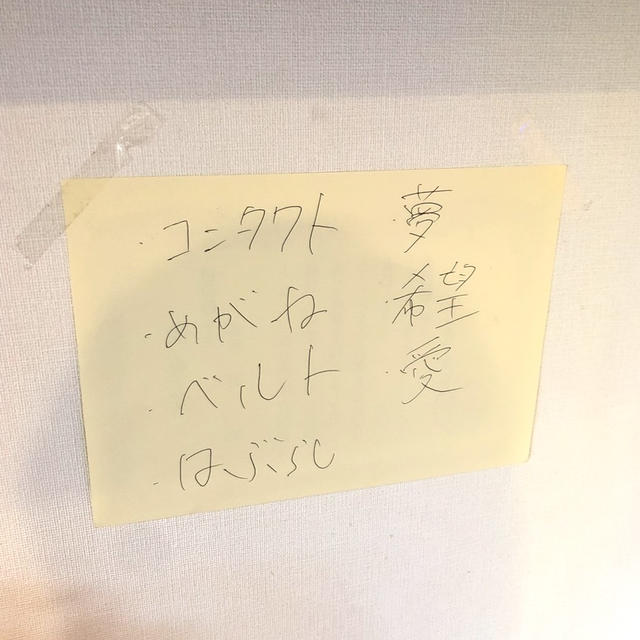 ・コンタクト
・めがね
・ベルト
・はぶらし
・夢
・希望
・愛